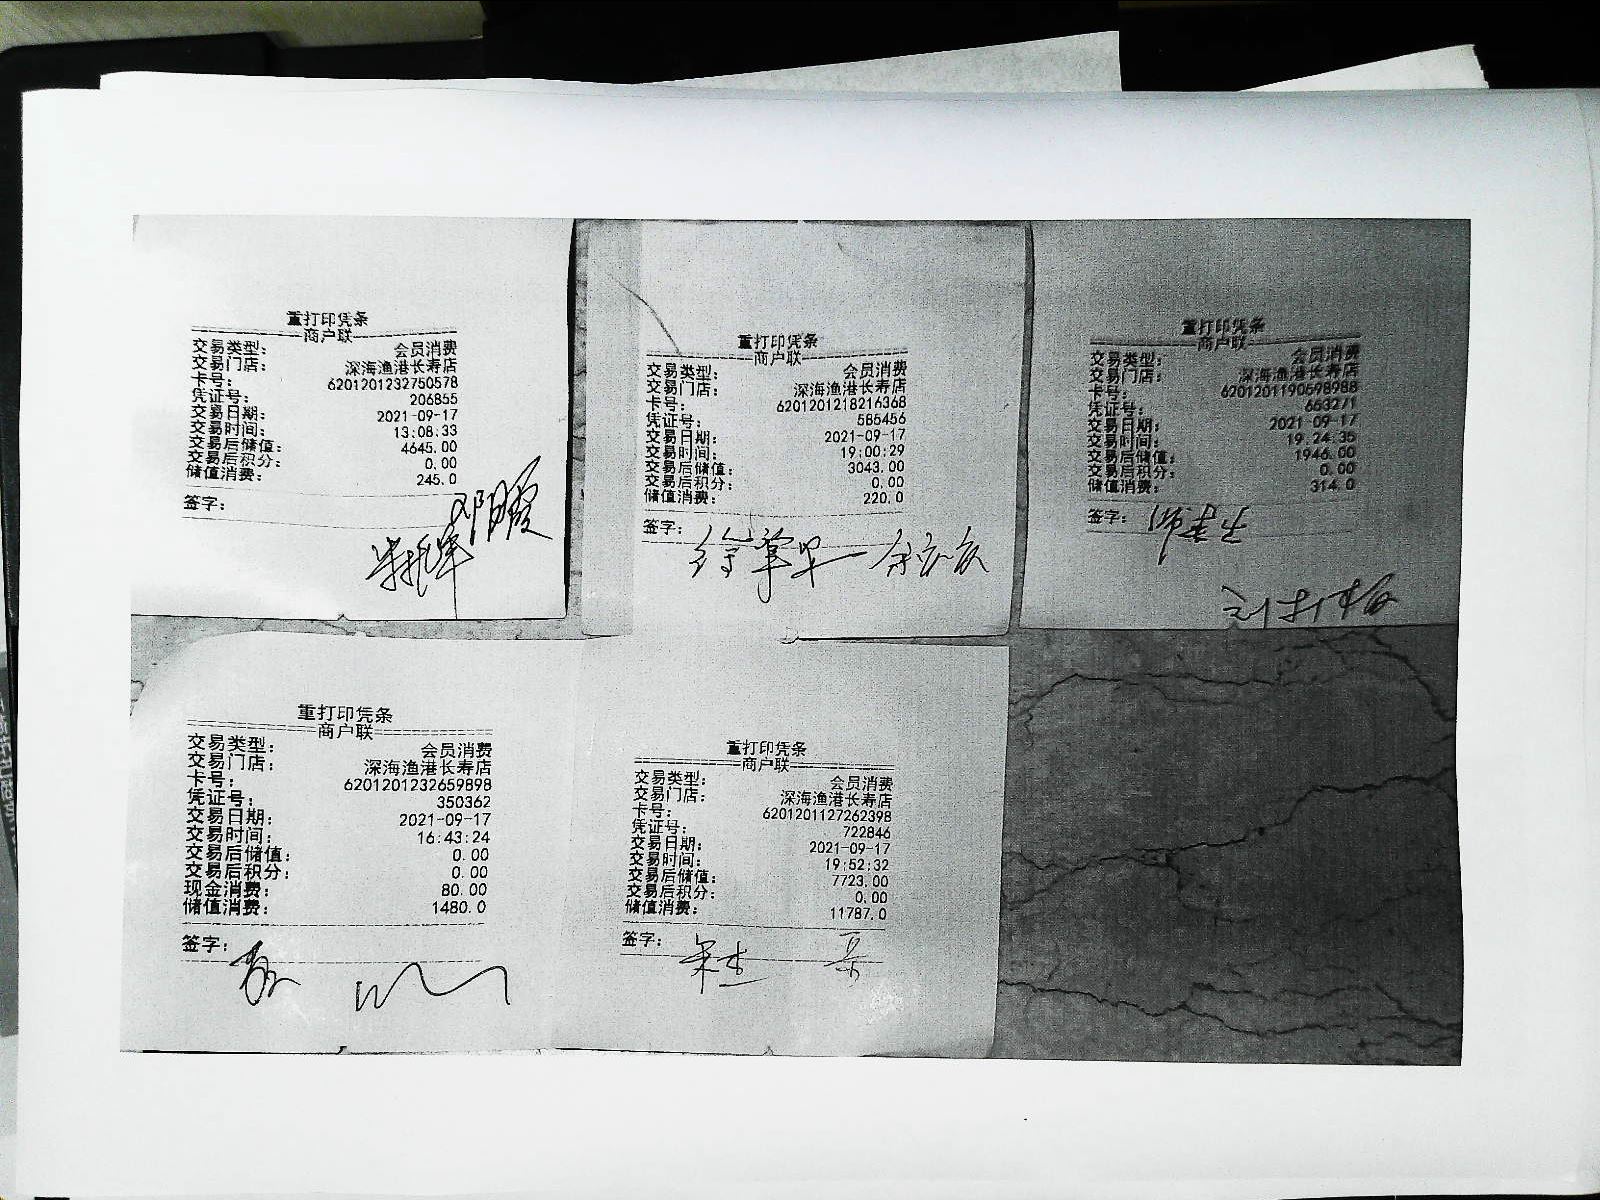 重打印凭条
商户联
交易类型： 会员消费
交易门店： 深海渔港长寿店
卡号： 6201201232750578
凭证号： 206855
交易日期： 2021-09-17
交易时间： 13:08:33
交易后储值： 4645.00
交易后积分： 0.00
储值消费： 245.0
签字：
重打印凭条
商户联
交易类型： 会员消费
交易门店： 深海渔港长寿店
卡号： 6201201218216368
凭证号： 585456
交易日期： 2021-09-17
交易时间： 19:00:29
交易后储值： 3043.00
交易后积分： 0.00
储值消费： 220.0
签字：
重打印凭条
商户联
交易类型： 会员消费
交易门店： 深海渔港长寿店
卡号： 6201201190698988
凭证号： 653271
交易日期： 2021-09-17
交易时间： 19:24:35
交易后储值： 1946.00
交易后积分： 0.00
储值消费： 314.0
签字：
重打印凭条
商户联
交易类型： 会员消费
交易门店： 深海渔港长寿店
卡号： 6201201232659898
凭证号： 350362
交易日期： 2021-09-17
交易时间： 16:43:24
交易后储值： 0.00
交易后积分： 0.00
现金消费： 80.00
储值消费： 1480.0
签字：
重打印凭条
商户联
交易类型： 会员消费
交易门店： 深海渔港长寿店
卡号： 6201201127262398
凭证号： 722846
交易日期： 2021-09-17
交易时间： 19:52:32
交易后储值： 7723.00
交易后积分： 0.00
储值消费： 11787.0
签字：